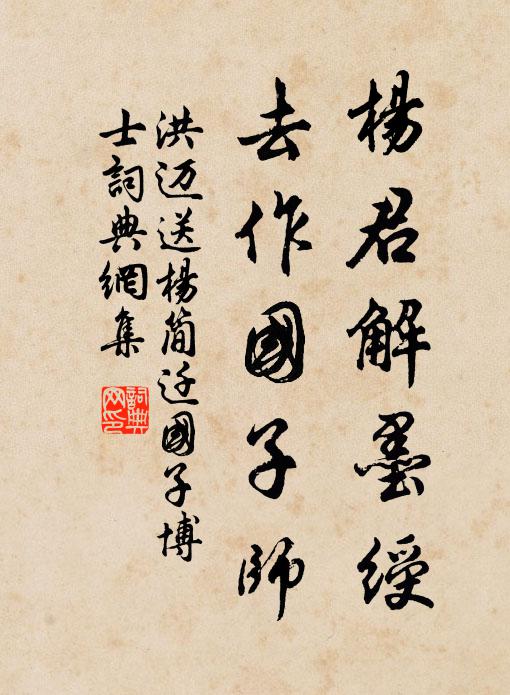 楊君解墨綬
去作國子師
洪迈送楊简迁國子博
士詞典網集
詞典
网印